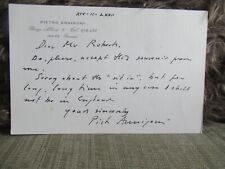 XIV-II-LXXII
PIETRO ANNIGONI
Borgo Albizi, 8
Dear Mr Roberts,
Do, please, accept this souvenir from
me.
Sorry about the "sit in", but for
long, long time in my case I shall
not be in England
yours sincerely
Pietro Annigoni